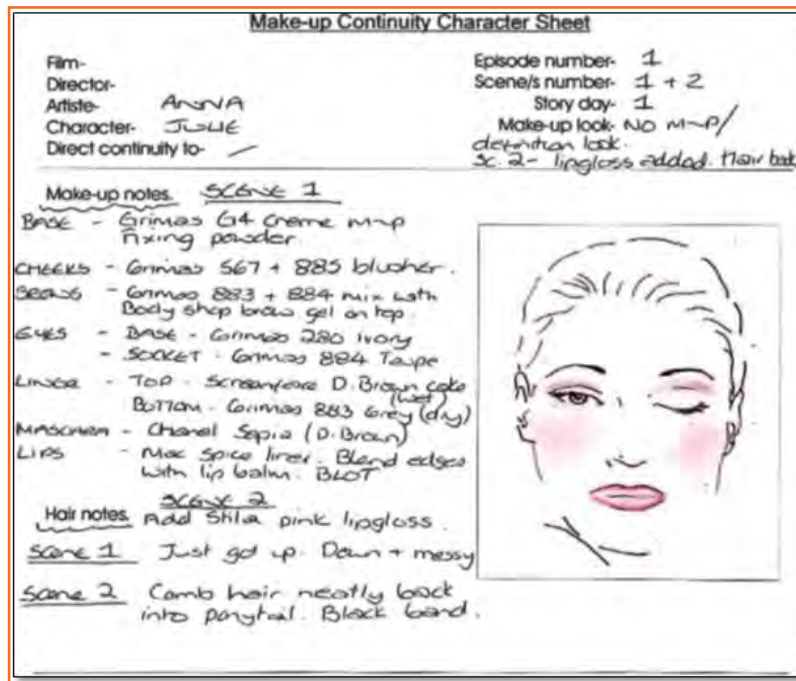 Make-up Continuity Character Sheet
Film-
Director-
Artiste- ANNA
Character- JULIE
Direct continuity to- /
Episode number- 1
Scene/s number- 1 + 2
Story day- 1
Make-up look- NO M-P/
definition look.
Sc. 2- lipgloss added. Hair back
Make-up notes. SCENE 1
BASE - Grimas G4 Creme m-p
Fixing powder.
CHEEKS - Grimas 567 + 885 blusher.
BROWS - Grimas 883 + 884 mix with
Body shop brow gel on top.
EYES - BASE - Grimas 280 Ivory
- SOCKET - Grimas 884 Taupe
LINER - TOP - Screenface D. Brown cake
(wet)
BOTTOM - Grimas 883 Grey (dry)
MASCARA - Chanel Sepia (D. Brown)
LIPS - Mac Spice liner. Blend edges
with lip balm. BLOT
SCENE 2
Hair notes. Add Stila pink lipgloss.
Scene 1 Just got up. Down + messy
Scene 2 Comb hair neatly back
into ponytail. Black band.